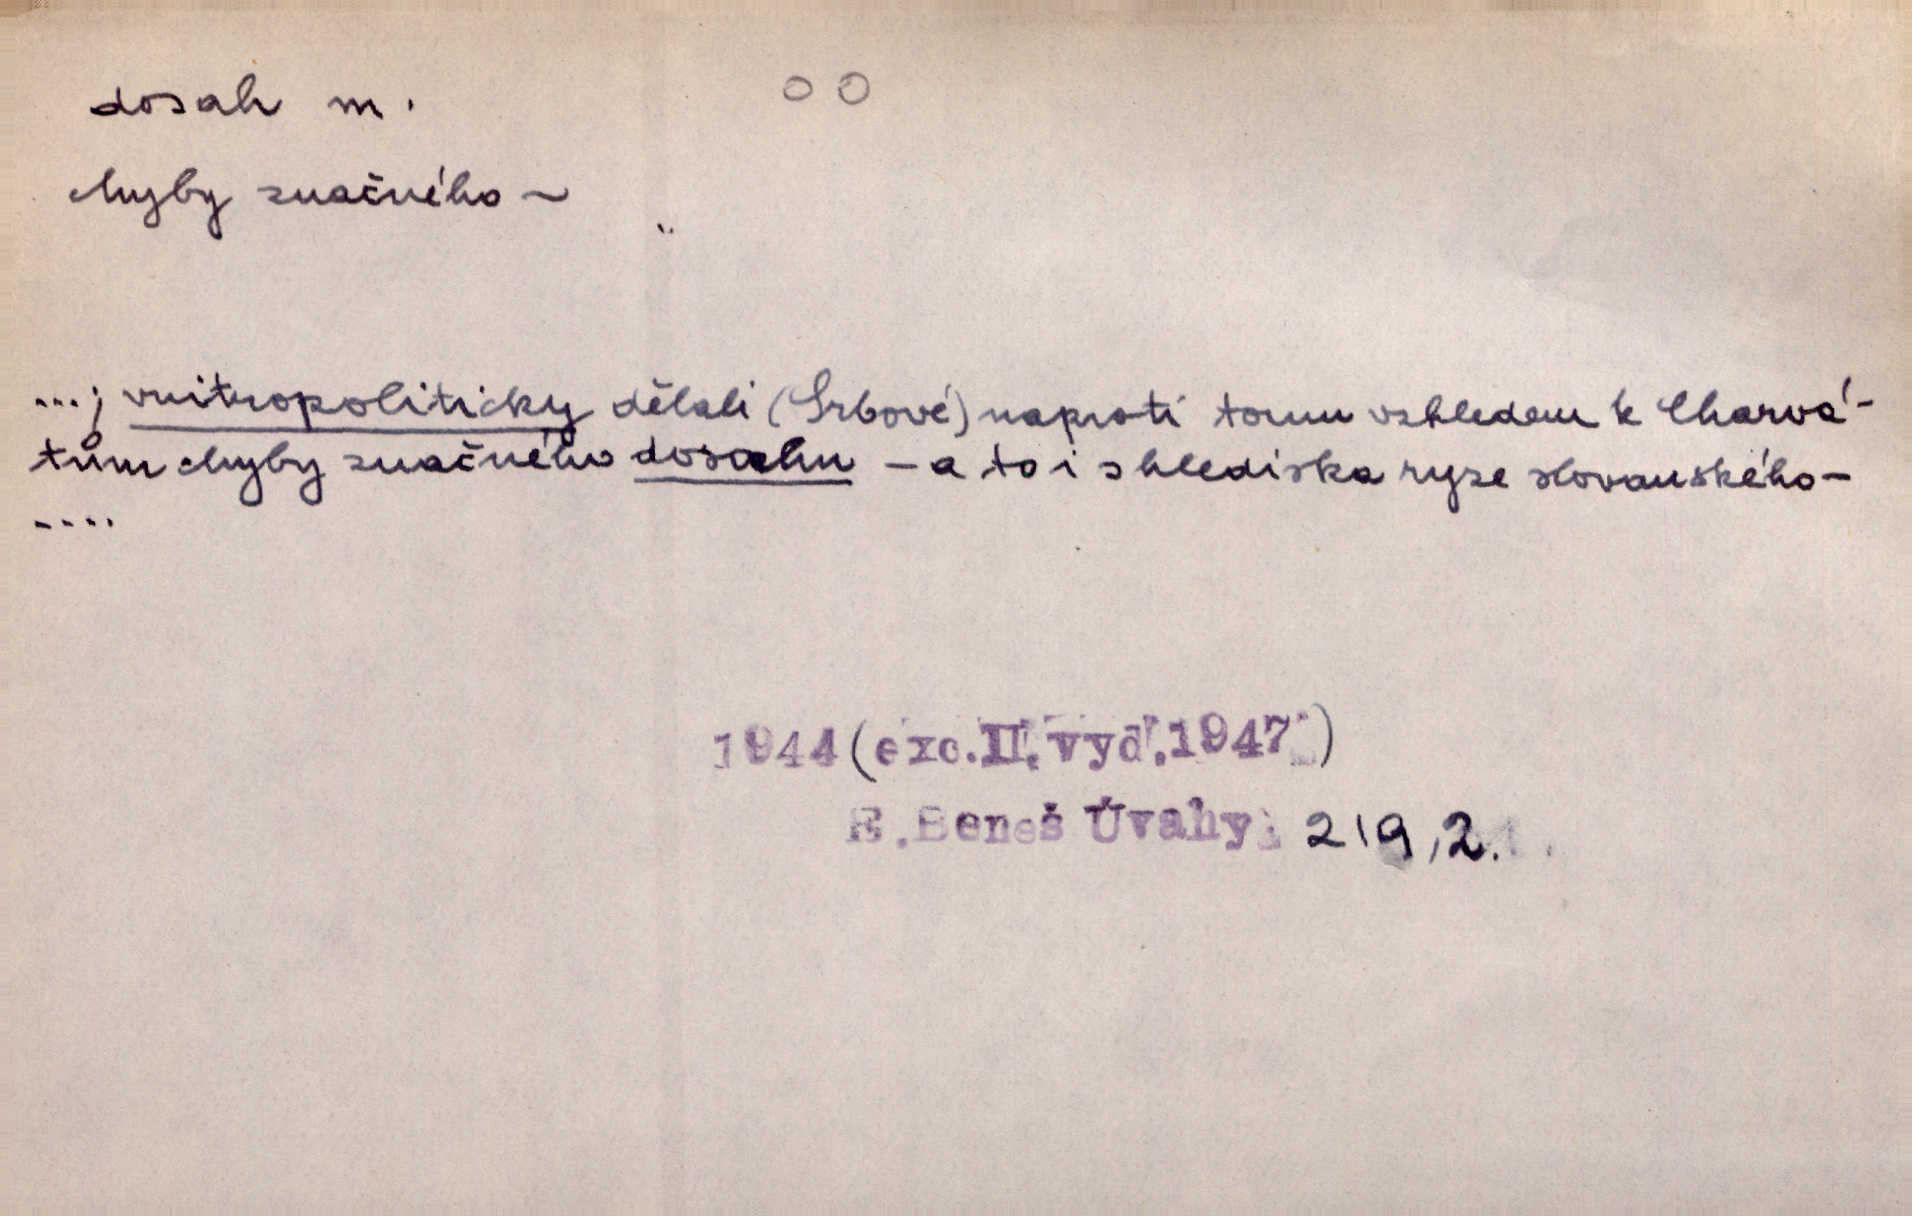 dosah m.
OO
chyby značného ~
...; vnitropoliticky dělali (Srbové) naproti tomu vzhledem k Charvá-
tům chyby značného dosahu – a to i s hlediska ryze slovanského –
....
1944 (exc. II. vyd. 1947)
E. Beneš Úvahy 219,2.